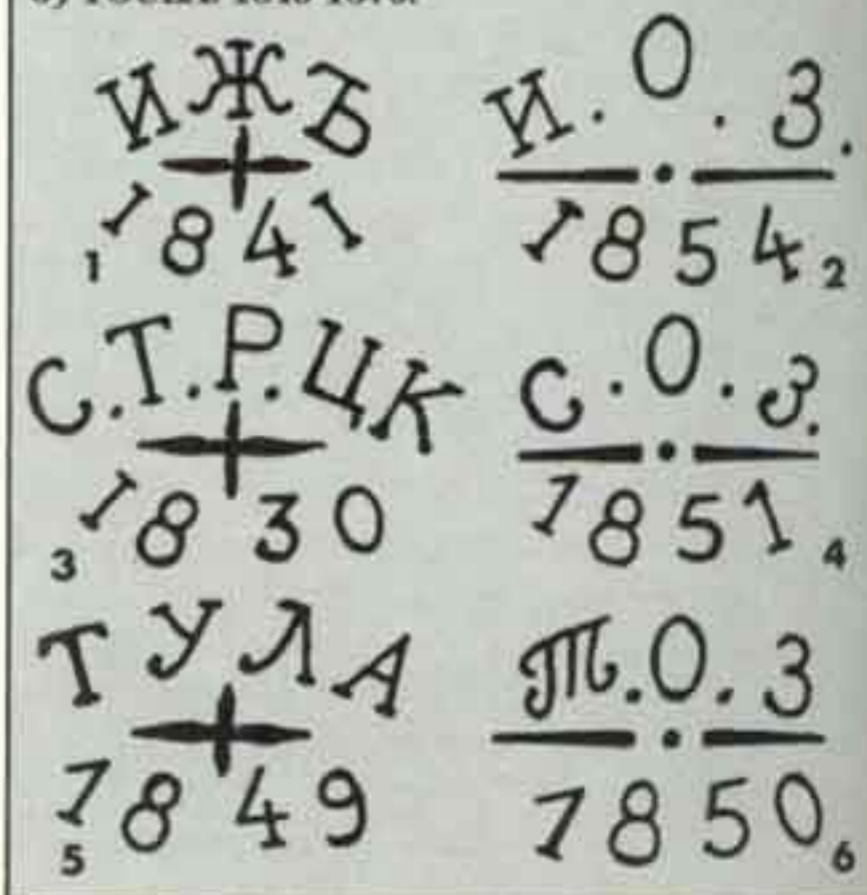 ИЖЪ
1841
1
И.О.З.
1854
2
С.Т.Р.ЦК
1830
3
С.О.З.
1851
4
ТУЛА
1849
5
Т.О.З
1850
6